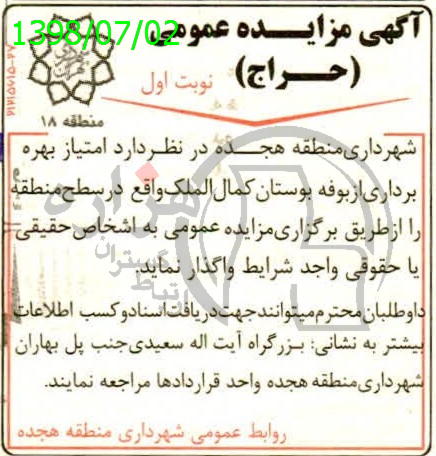 1398/07/02
آگهی مزایـــده عمومی
(حـــراج)
نوبت اول
منطقه ۱۸
شهرداری منطقه هجـــده در نظـر دارد امتیاز بهره
برداری از بوفه بوستان کمال الملک واقع در سطح منطقه
را از طریق برگزاری مزایده عمومی به اشخاص حقیقی
یا حقوقی واجد شرایط واگذار نماید.
داوطلبان محترم میتوانند جهت دریافت اسناد و کسب اطلاعات
بیشتر به نشانی: بـزرگراه آیت اله سعیدی جنب پل بهاران
شهرداری منطقه هجده واحد قراردادها مراجعه نمایند.
روابط عمومی شهرداری منطقه هجده
هزاره
گستران
ارتباط